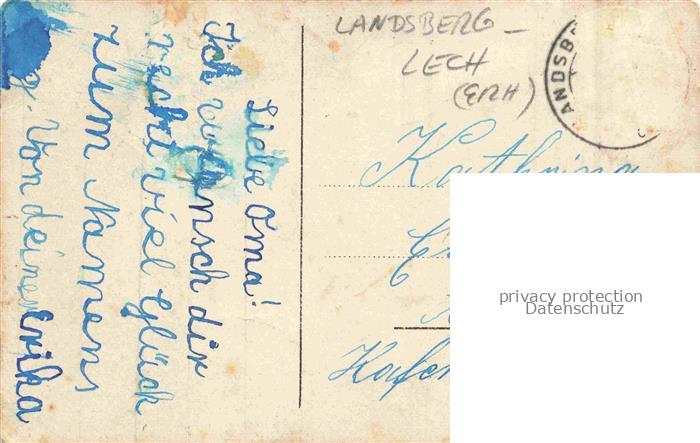 Liebe Oma!
Ich wünsch dir
recht viel Glück
zum Namens
g. Von deiner Erika
LANDSBERG -
LECH
(ERH)
ANDSB
Kathrina
Hafen
privacy protection
Datenschutz